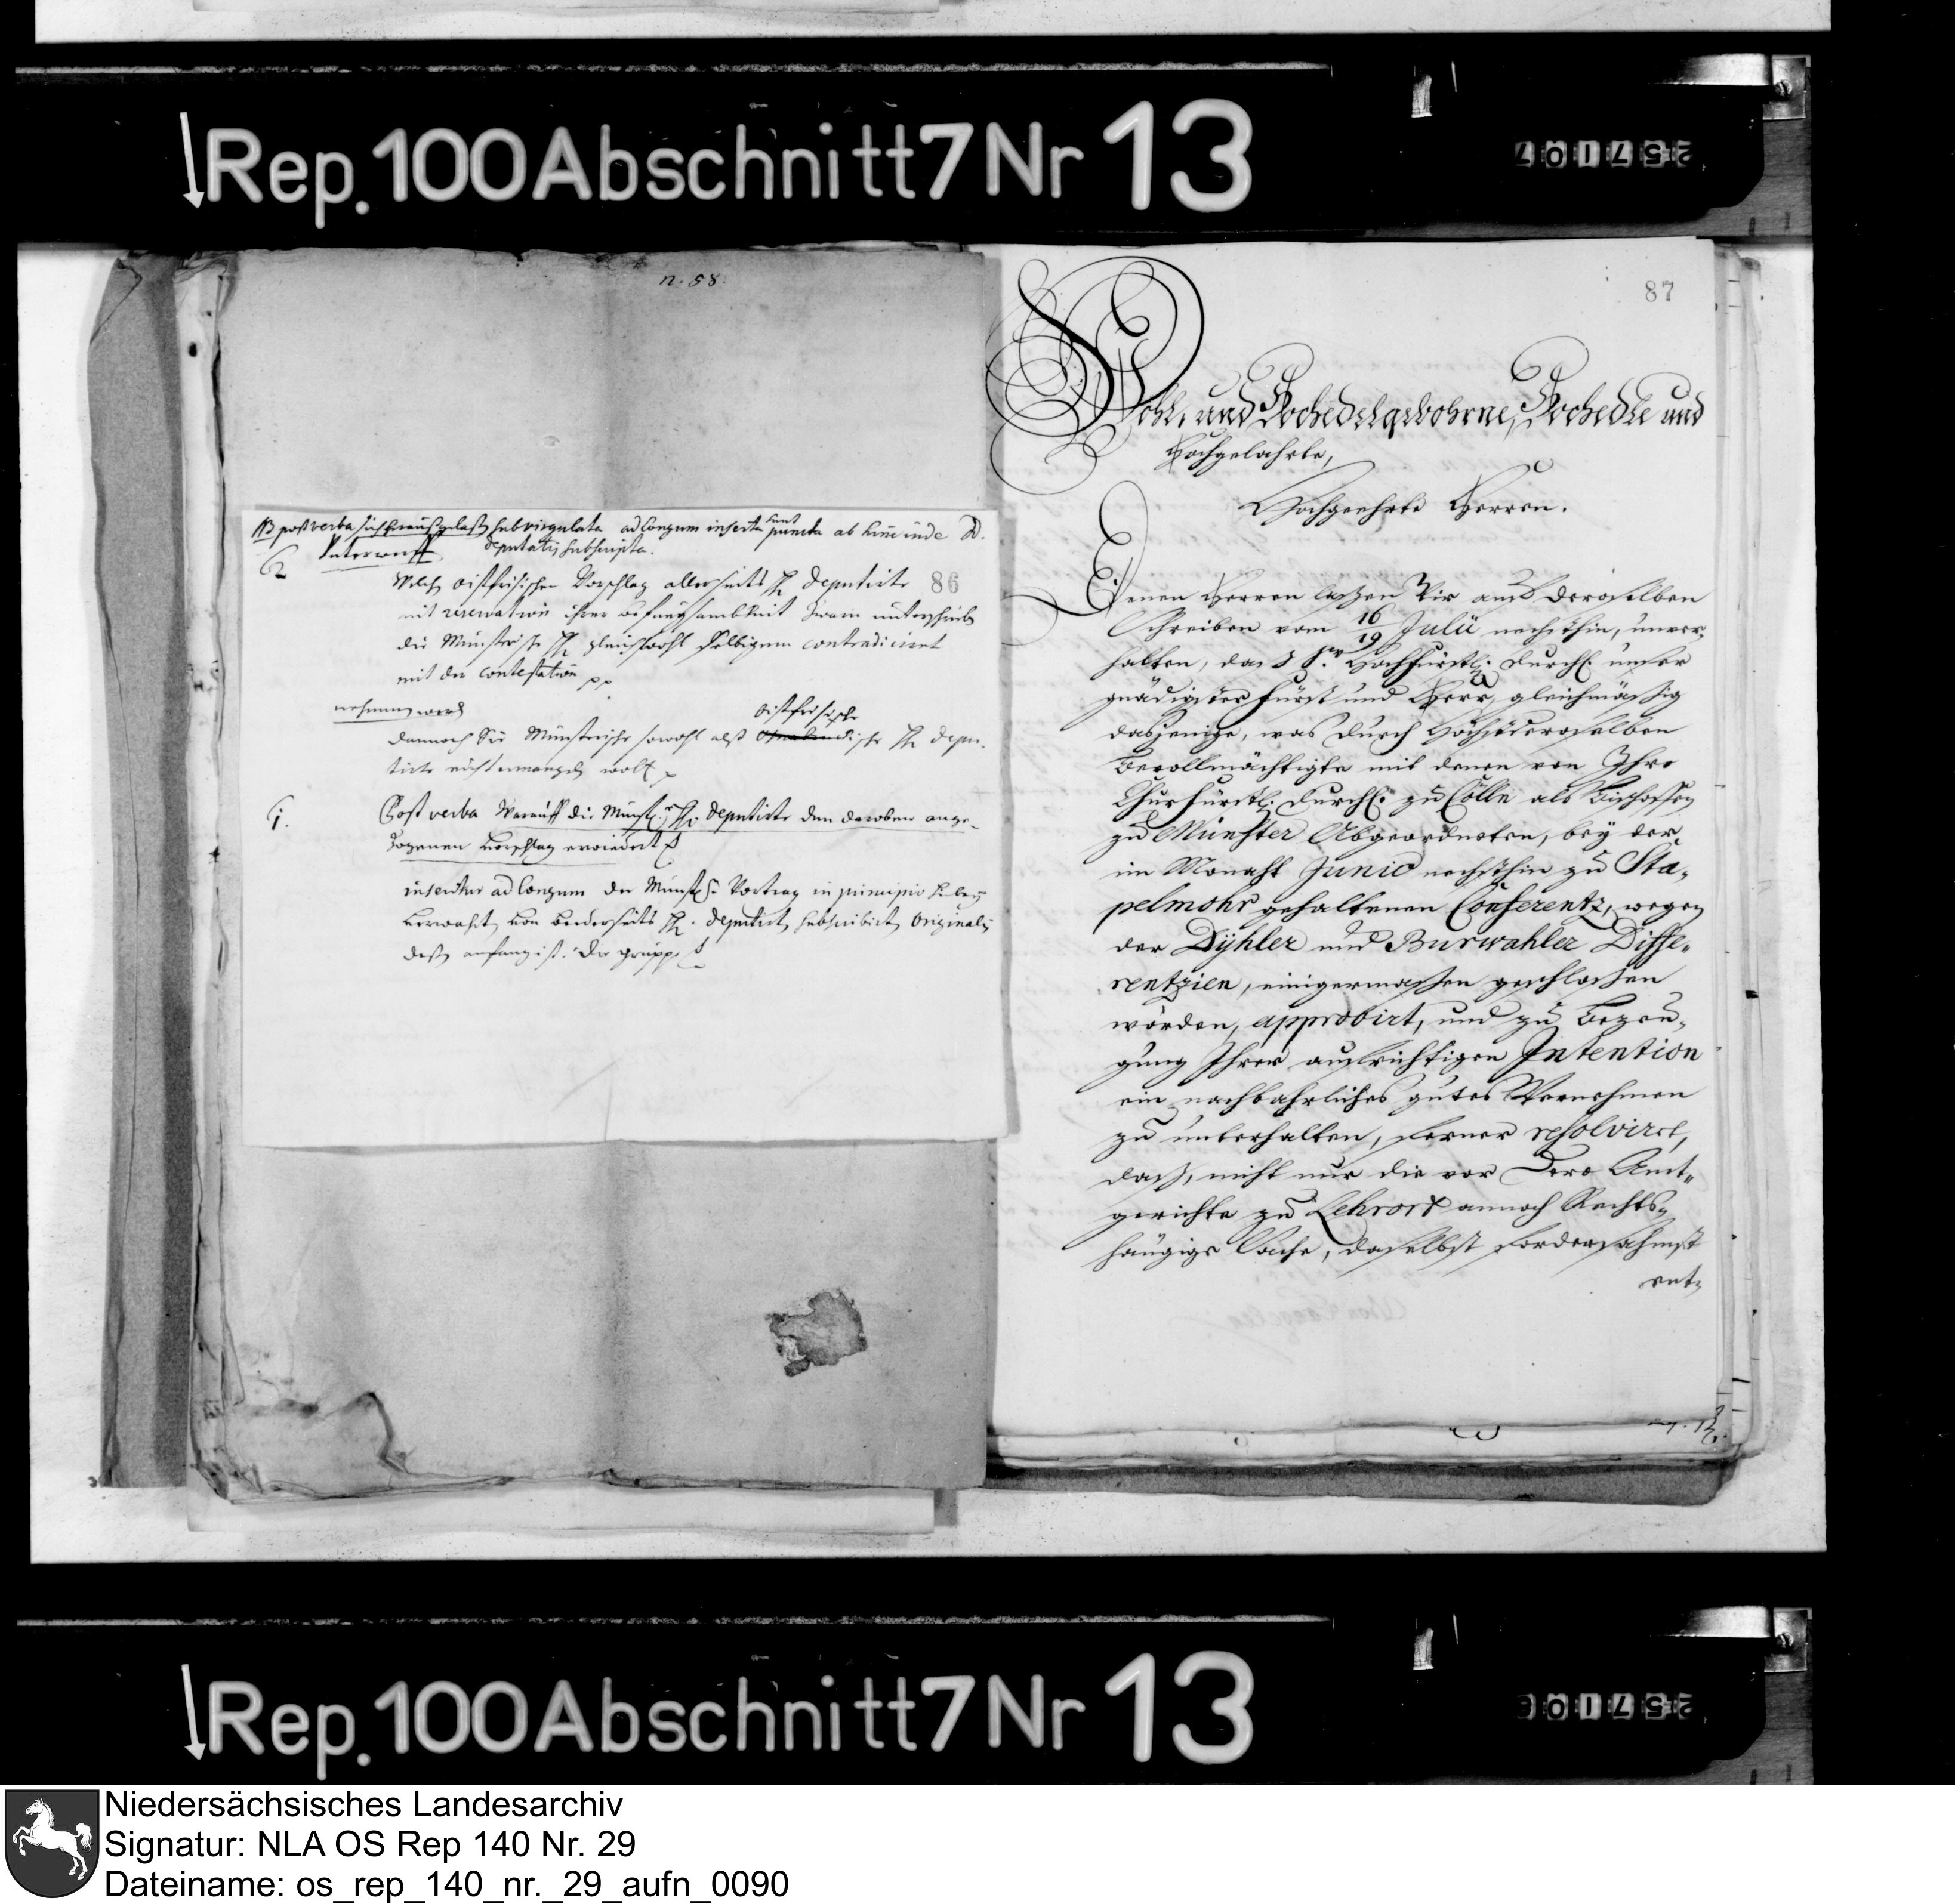 Rep. 100 Abschnitt 7 Nr 13
257107
n. 58.
NB post verba subvirgulata ad longum inserta sunt puncta ab hinc inde D.
deputatis subscripta.
2
86
mit reservation ihrer unterschrieb
die Münsterische gleichwohl selbigem contradiciret
mit der contestation pp
nehmen werd
oistfrisische
dannoch die Münsterische sowohl alß H. depu-
tirte nicht ermangeln
1.
Post verba Worauff die Münst. H. deputirte den daroben ange-
zogenen Vorschlag erwiedert
inseratur ad longum der Münst. Vortrag in principio
von beederseits H. deputirten subscribirten Originalis
deßen anfang ist. die gruppe
87
Wohl, und Hochedelgebohrne, Hochedle und
Hochgelahrte,
Hochgeehrte Herren.
Denen Herren laßen Wir auf deroselben
Schreiben vom 16/19 Julii nechsthin, unver-
halten, das Sr. Hochfürstl. Durchl. unser
gnädigster Fürst und Herr, gleichmäßig
dasjenige, was durch Höchstderoselben
Bevollmächtigte mit denen von Ihro
Churfürstl. Durchl. zu Cölln als Bischoffen
zu Münster Abgeordneten, bey der
im Monaht Junio nechsthin zu Sta-
pelmohr gehaltenen Conferentz, wegen
der Dyhler und Burwahler Diffe-
rentzien, einigermaßen geschloßen
worden, approbirt, und zu bezeu-
gung Ihrer aufrichtigen Intention
ein nachbahrliches gutes Vernehmen
zu unterhalten, ferner resolvirt,
daß, nicht nur die vor Dero Amt-
gerichte zu Lehrort annoch Rechts-
hängige Sache, daselbst fordersahmst
ent-
Rep. 100 Abschnitt 7 Nr 13
257108
Niedersächsisches Landesarchiv
Signatur: NLA OS Rep 140 Nr. 29
Dateiname: os_rep_140_nr._29_aufn_0090